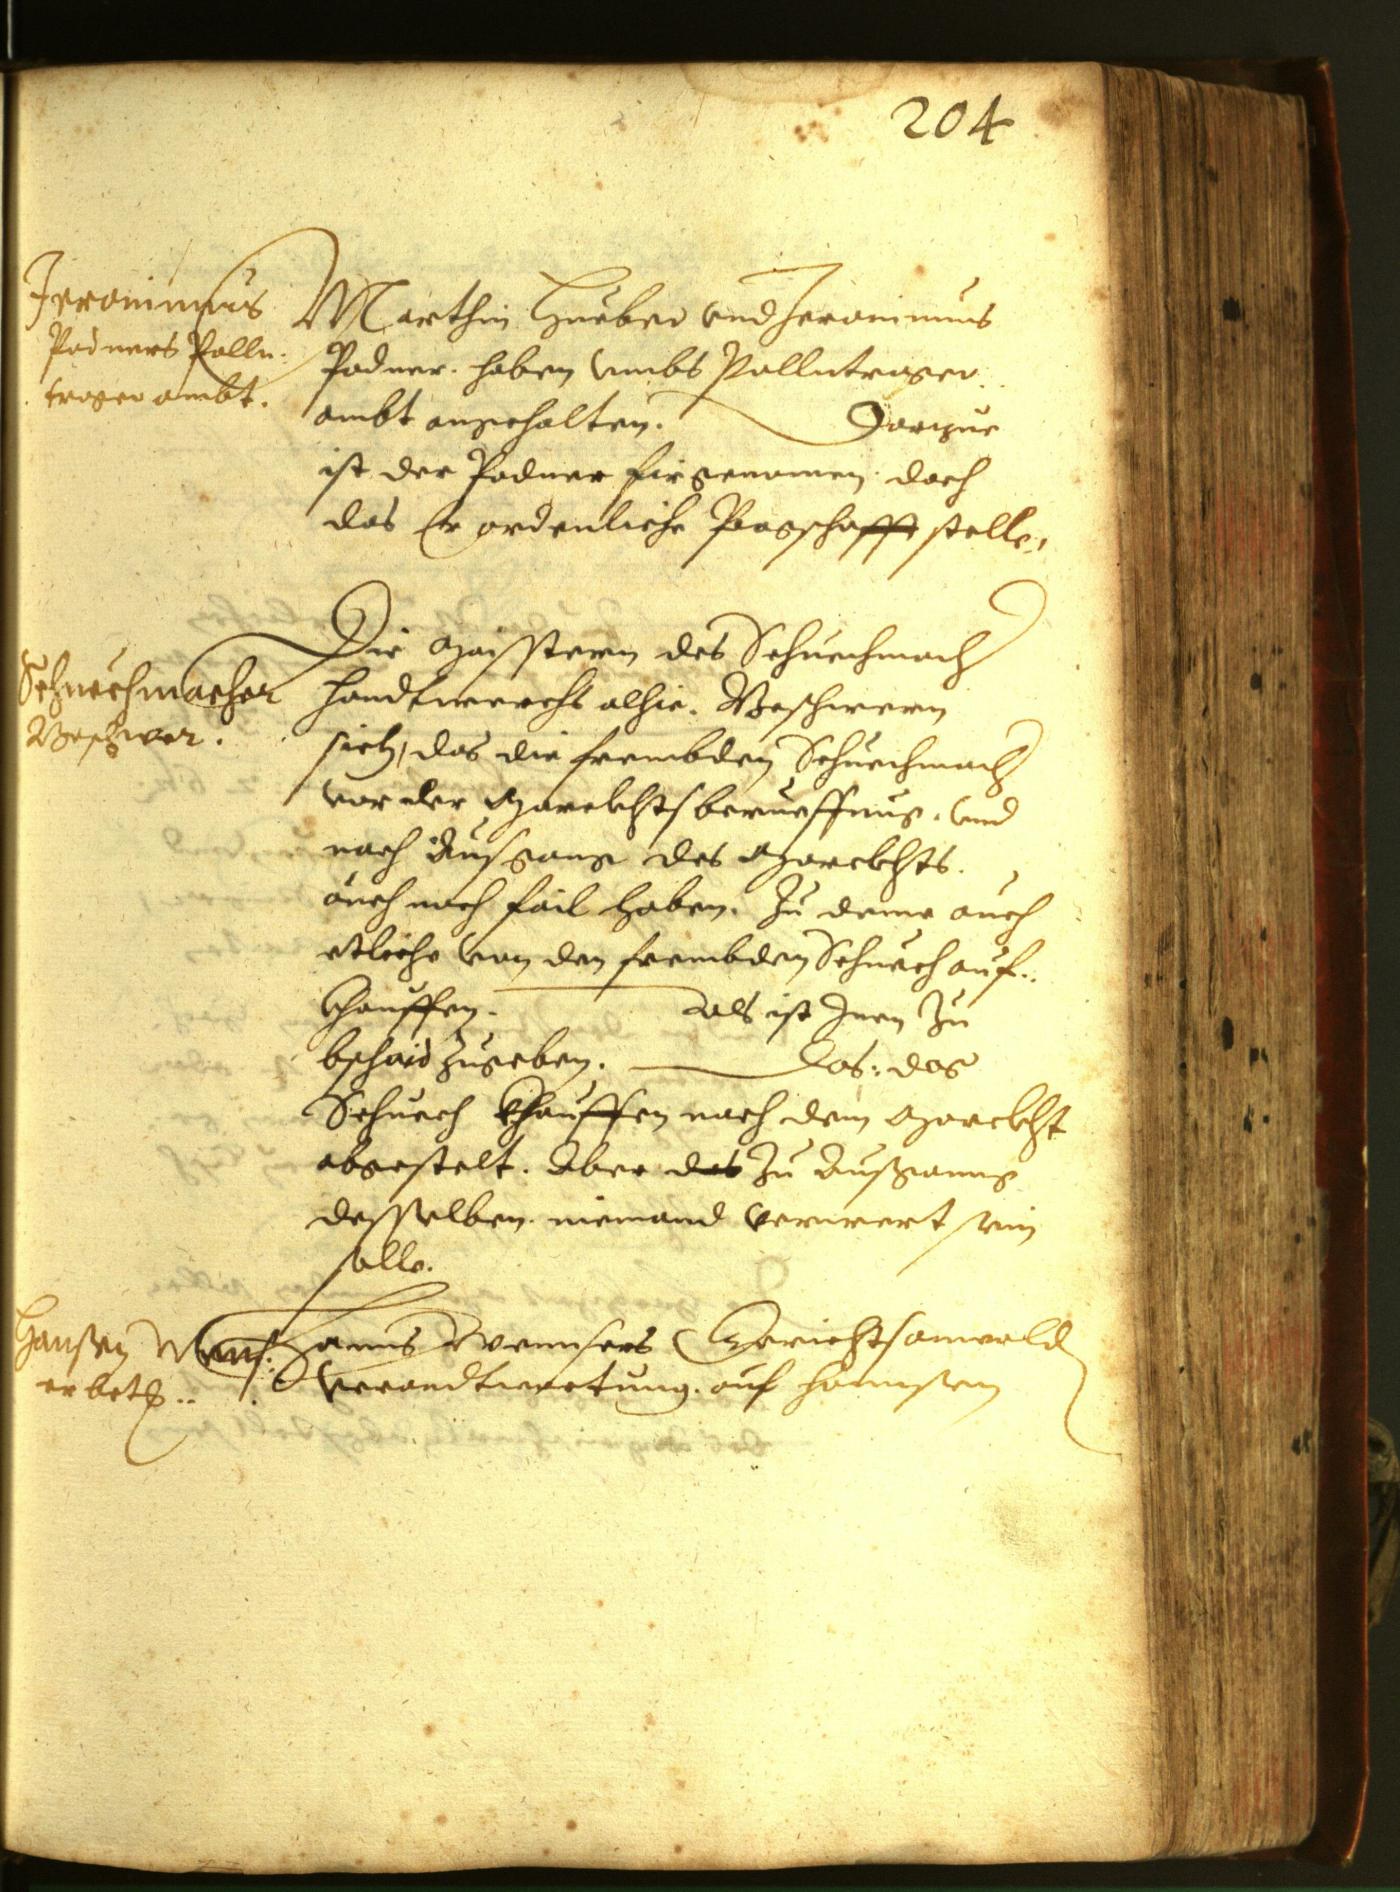 204
Jeronimus
Podners Palln-
trager ambt.
Marthin Hueber und Jeronimus
Podner. haben umbs Pallntrager
ambt angehalten. Darzue
ist der Podner fürgenomen. doch
das Er ordenliche Porgschafft stelle.
Schuechmacher
Beschwer.
Die Maisstern des Schuechmach
handtwerchs alhie. Beschwern
sich, das die frembden Schuechmach
vor der Marckhtsberueffung. und
nach Außgang des Marckhts.
auch noch fail haben. Zu deme auch
etliche von den frembden Schuech auf-
khauffen. Als ist Inen Zu
bschaid zugeben. Das: das
Schuech khauffen nach dem Marckht
abgestelt. Aber das Zu Außgang
desselben. niemand verwert sein
solle.
Hansen Wens:
erbetn.
Hanns Wennsers Gerichtsanwald
Verandtwortung. auf Hannsen